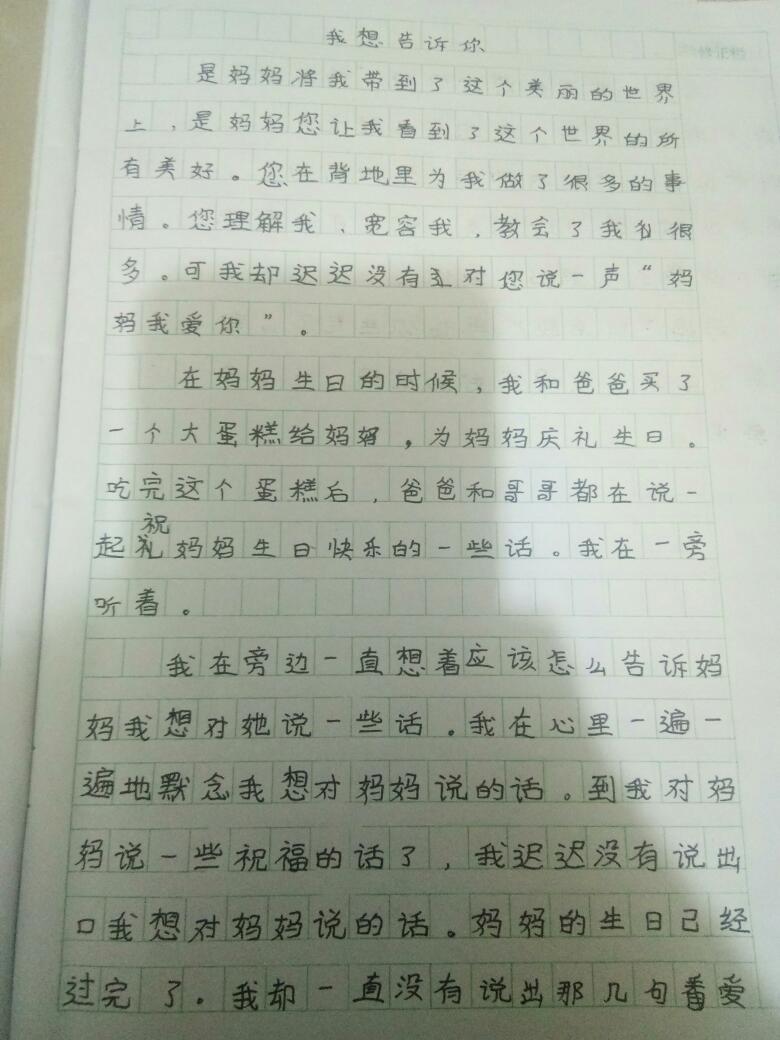 我想告诉你
是妈妈将我带到了这个美丽的世界
上，是妈妈您让我看到了这个世界的所
有美好。您在背地里为我做了很多的事
情。您理解我、宽容我，教会了我很
多。可我却迟迟没有对您说一声“妈
妈我爱你”。
在妈妈生日的时候，我和爸爸买了
一个大蛋糕给妈妈，为妈妈庆礼生日。
吃完这个蛋糕后，爸爸和哥哥都在说一
起祝妈妈生日快乐的一些话。我在一旁
听着。
我在旁边一直想着应该怎么告诉妈
妈我想对她说一些话。我在心里一遍一
遍地默念我想对妈妈说的话。到我对妈
妈说一些祝福的话了，我迟迟没有说出
口我想对妈妈说的话。妈妈的生日已经
过完了。我却一直没有说出那几句爱